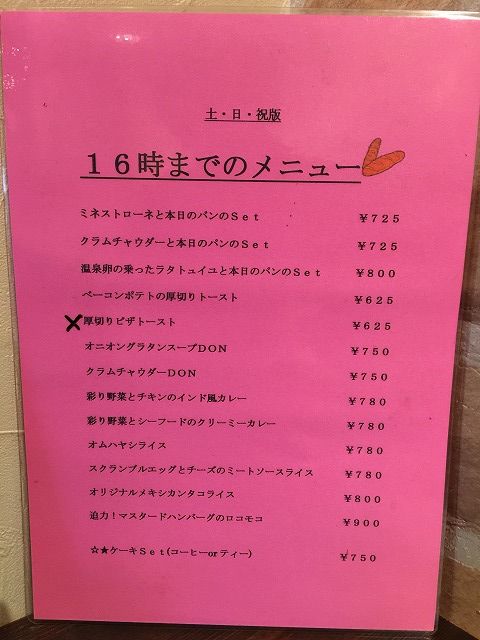 土・日・祝版
16時までのメニュー
ミネストローネと本日のパンのSet ￥725
クラムチャウダーと本日のパンのSet ￥725
温泉卵の乗ったラタトゥイユと本日のパンのSet ￥800
ベーコンポテトの厚切りトースト ￥625
✕厚切りピザトースト ￥625
オニオングラタンスープDON ￥750
クラムチャウダーDON ￥750
彩り野菜とチキンのインド風カレー ￥780
彩り野菜とシーフードのクリーミーカレー ￥780
オムハヤシライス ￥780
スクランブルエッグとチーズのミートソースライス ￥780
オリジナルメキシカンタコライス ￥800
迫力！マスタードハンバーグのロコモコ ￥900
☆★ケーキSet(コーヒーorティー) ￥750